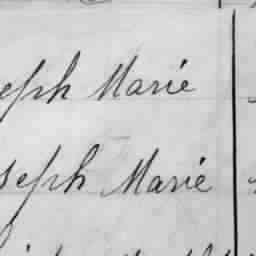 eph Marie
seph Marie